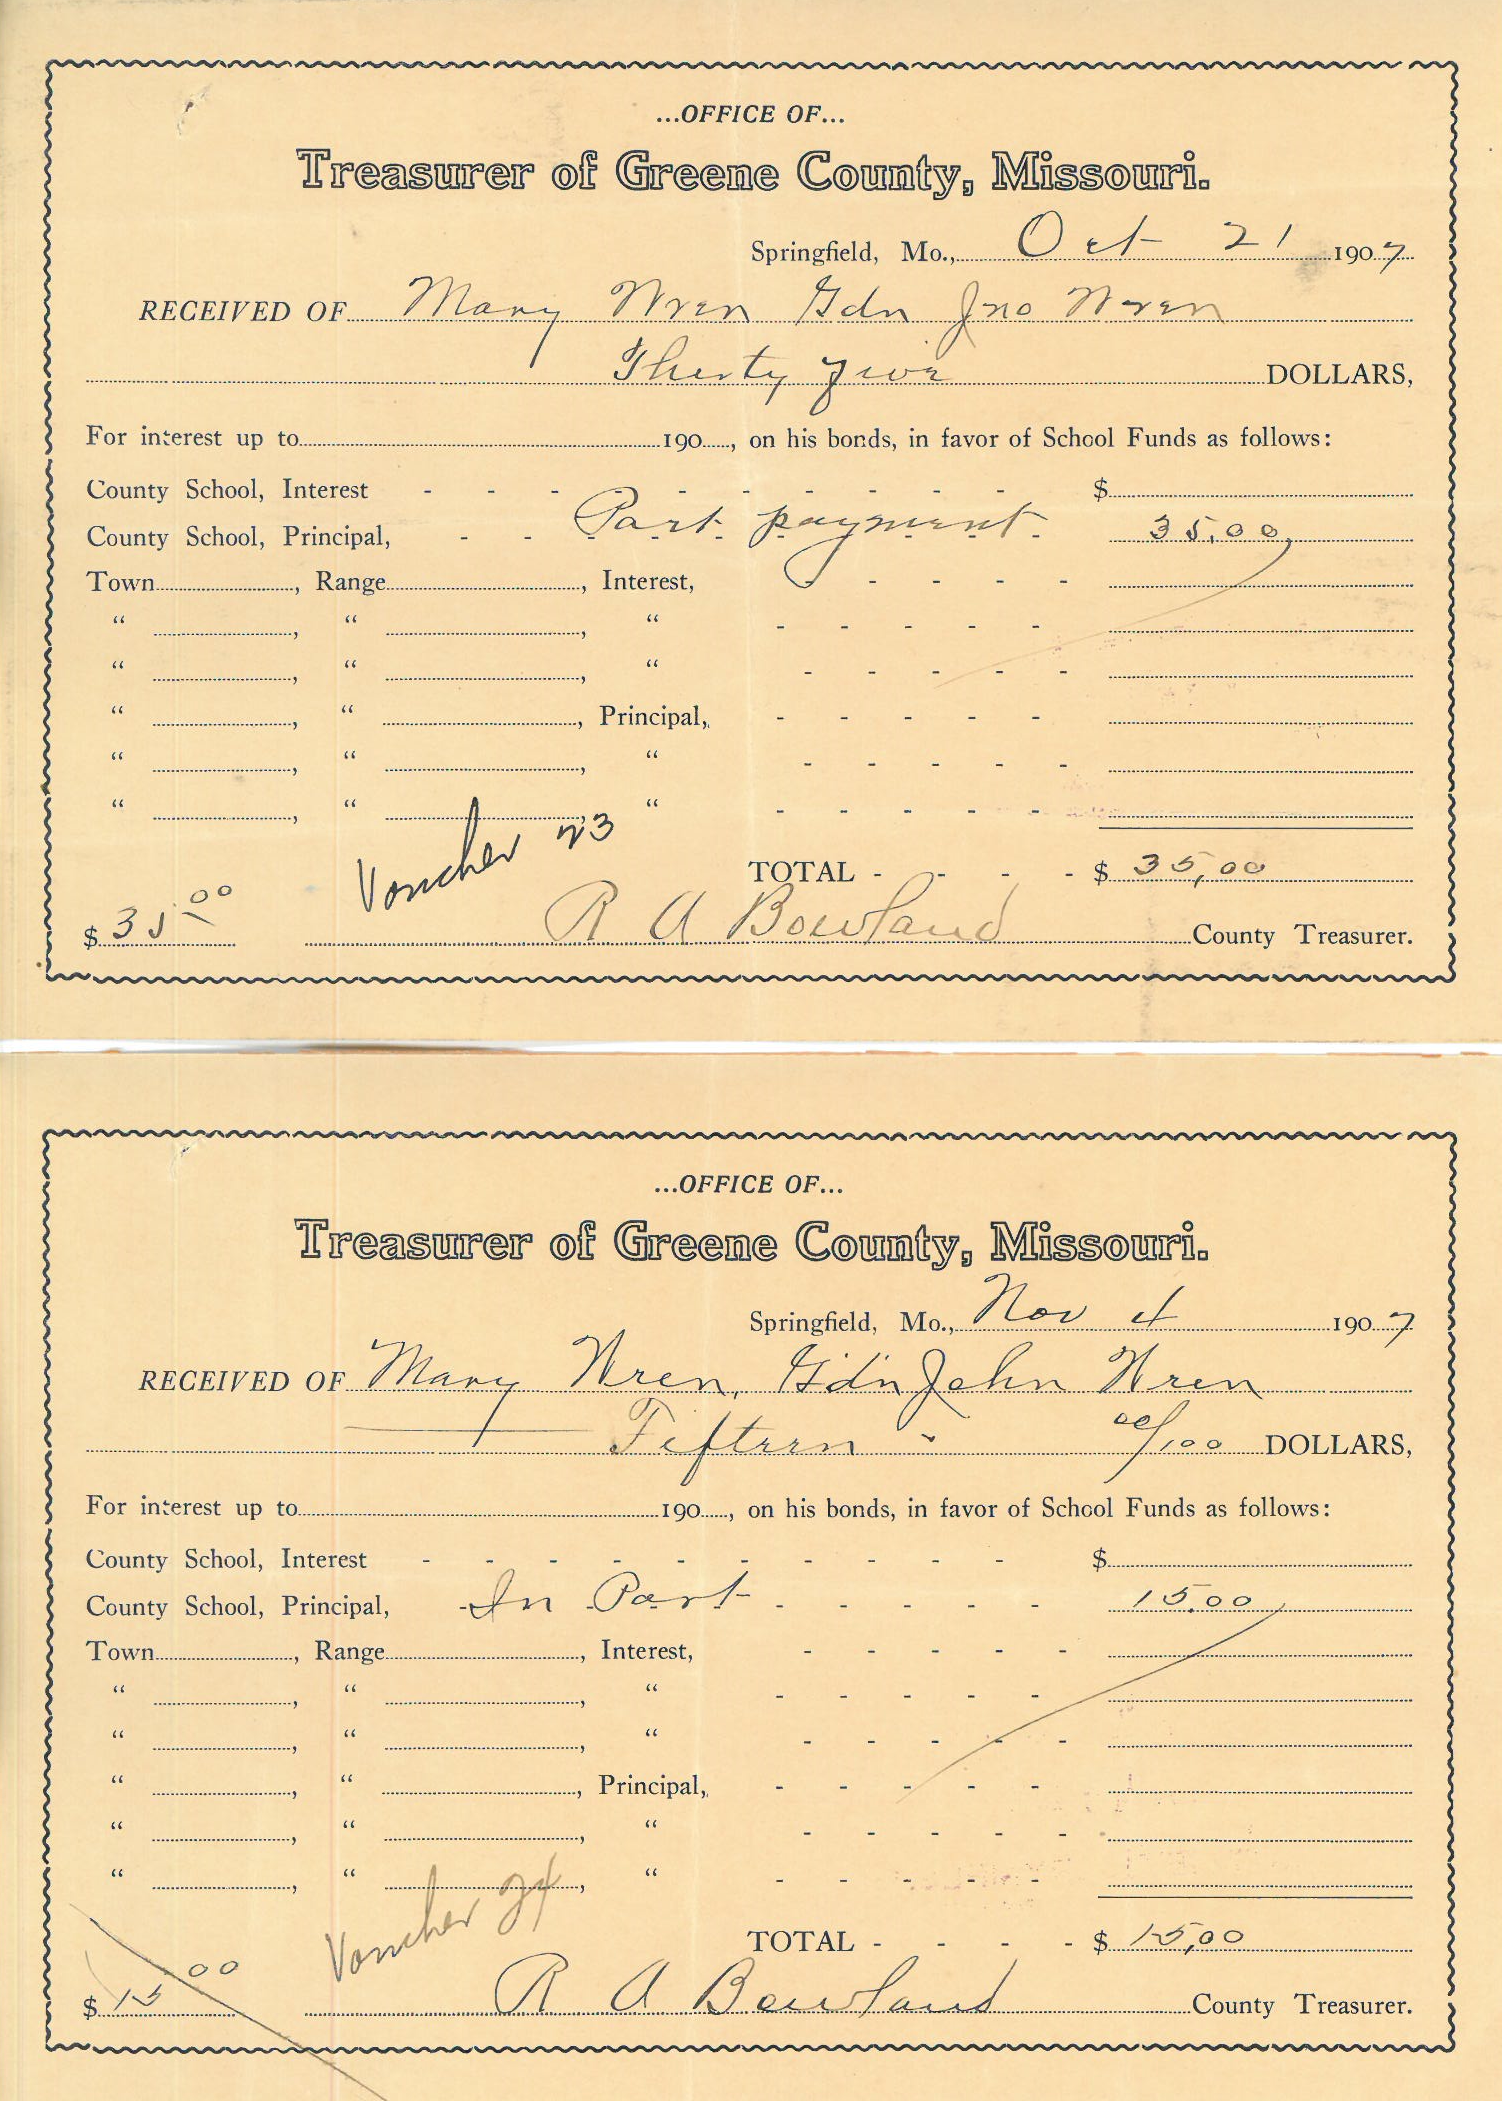 ...OFFICE OF...
Treasurer of Greene County, Missouri.
Springfield, Mo., Oct 21 1907
RECEIVED OF Mary Wren Gdn Jno Wren
Thirty five DOLLARS,
For interest up to 190 , on his bonds, in favor of School Funds as follows:
County School, Interest - - - - - - - - - - $
County School, Principal, - - Part payment 35.00
Town , Range , Interest, - - - - -
" , " , " - - - - -
" , " , " - - - - -
" , " , Principal, - - - - -
" , " , " - - - - -
" , " , " - - - - -
Voucher 23
TOTAL - - - - $ 35,00
$ 35 00 R A Bowland County Treasurer.
...OFFICE OF...
Treasurer of Greene County, Missouri.
Springfield, Mo., Nov 4 1907
RECEIVED OF Mary Wren, Gd'n John Wren
Fifteen - 00/100 DOLLARS,
For interest up to 190 , on his bonds, in favor of School Funds as follows:
County School, Interest - - - - - - - - - - $
County School, Principal, - In Part - - - - - 15.00
Town , Range , Interest, - - - - -
" , " , " - - - - -
" , " , " - - - - -
" , " , Principal, - - - - -
" , " , " - - - - -
" , " , " - - - - -
Voucher 24
TOTAL - - - - $ 15,00
$ 15 00 R A Bowland County Treasurer.